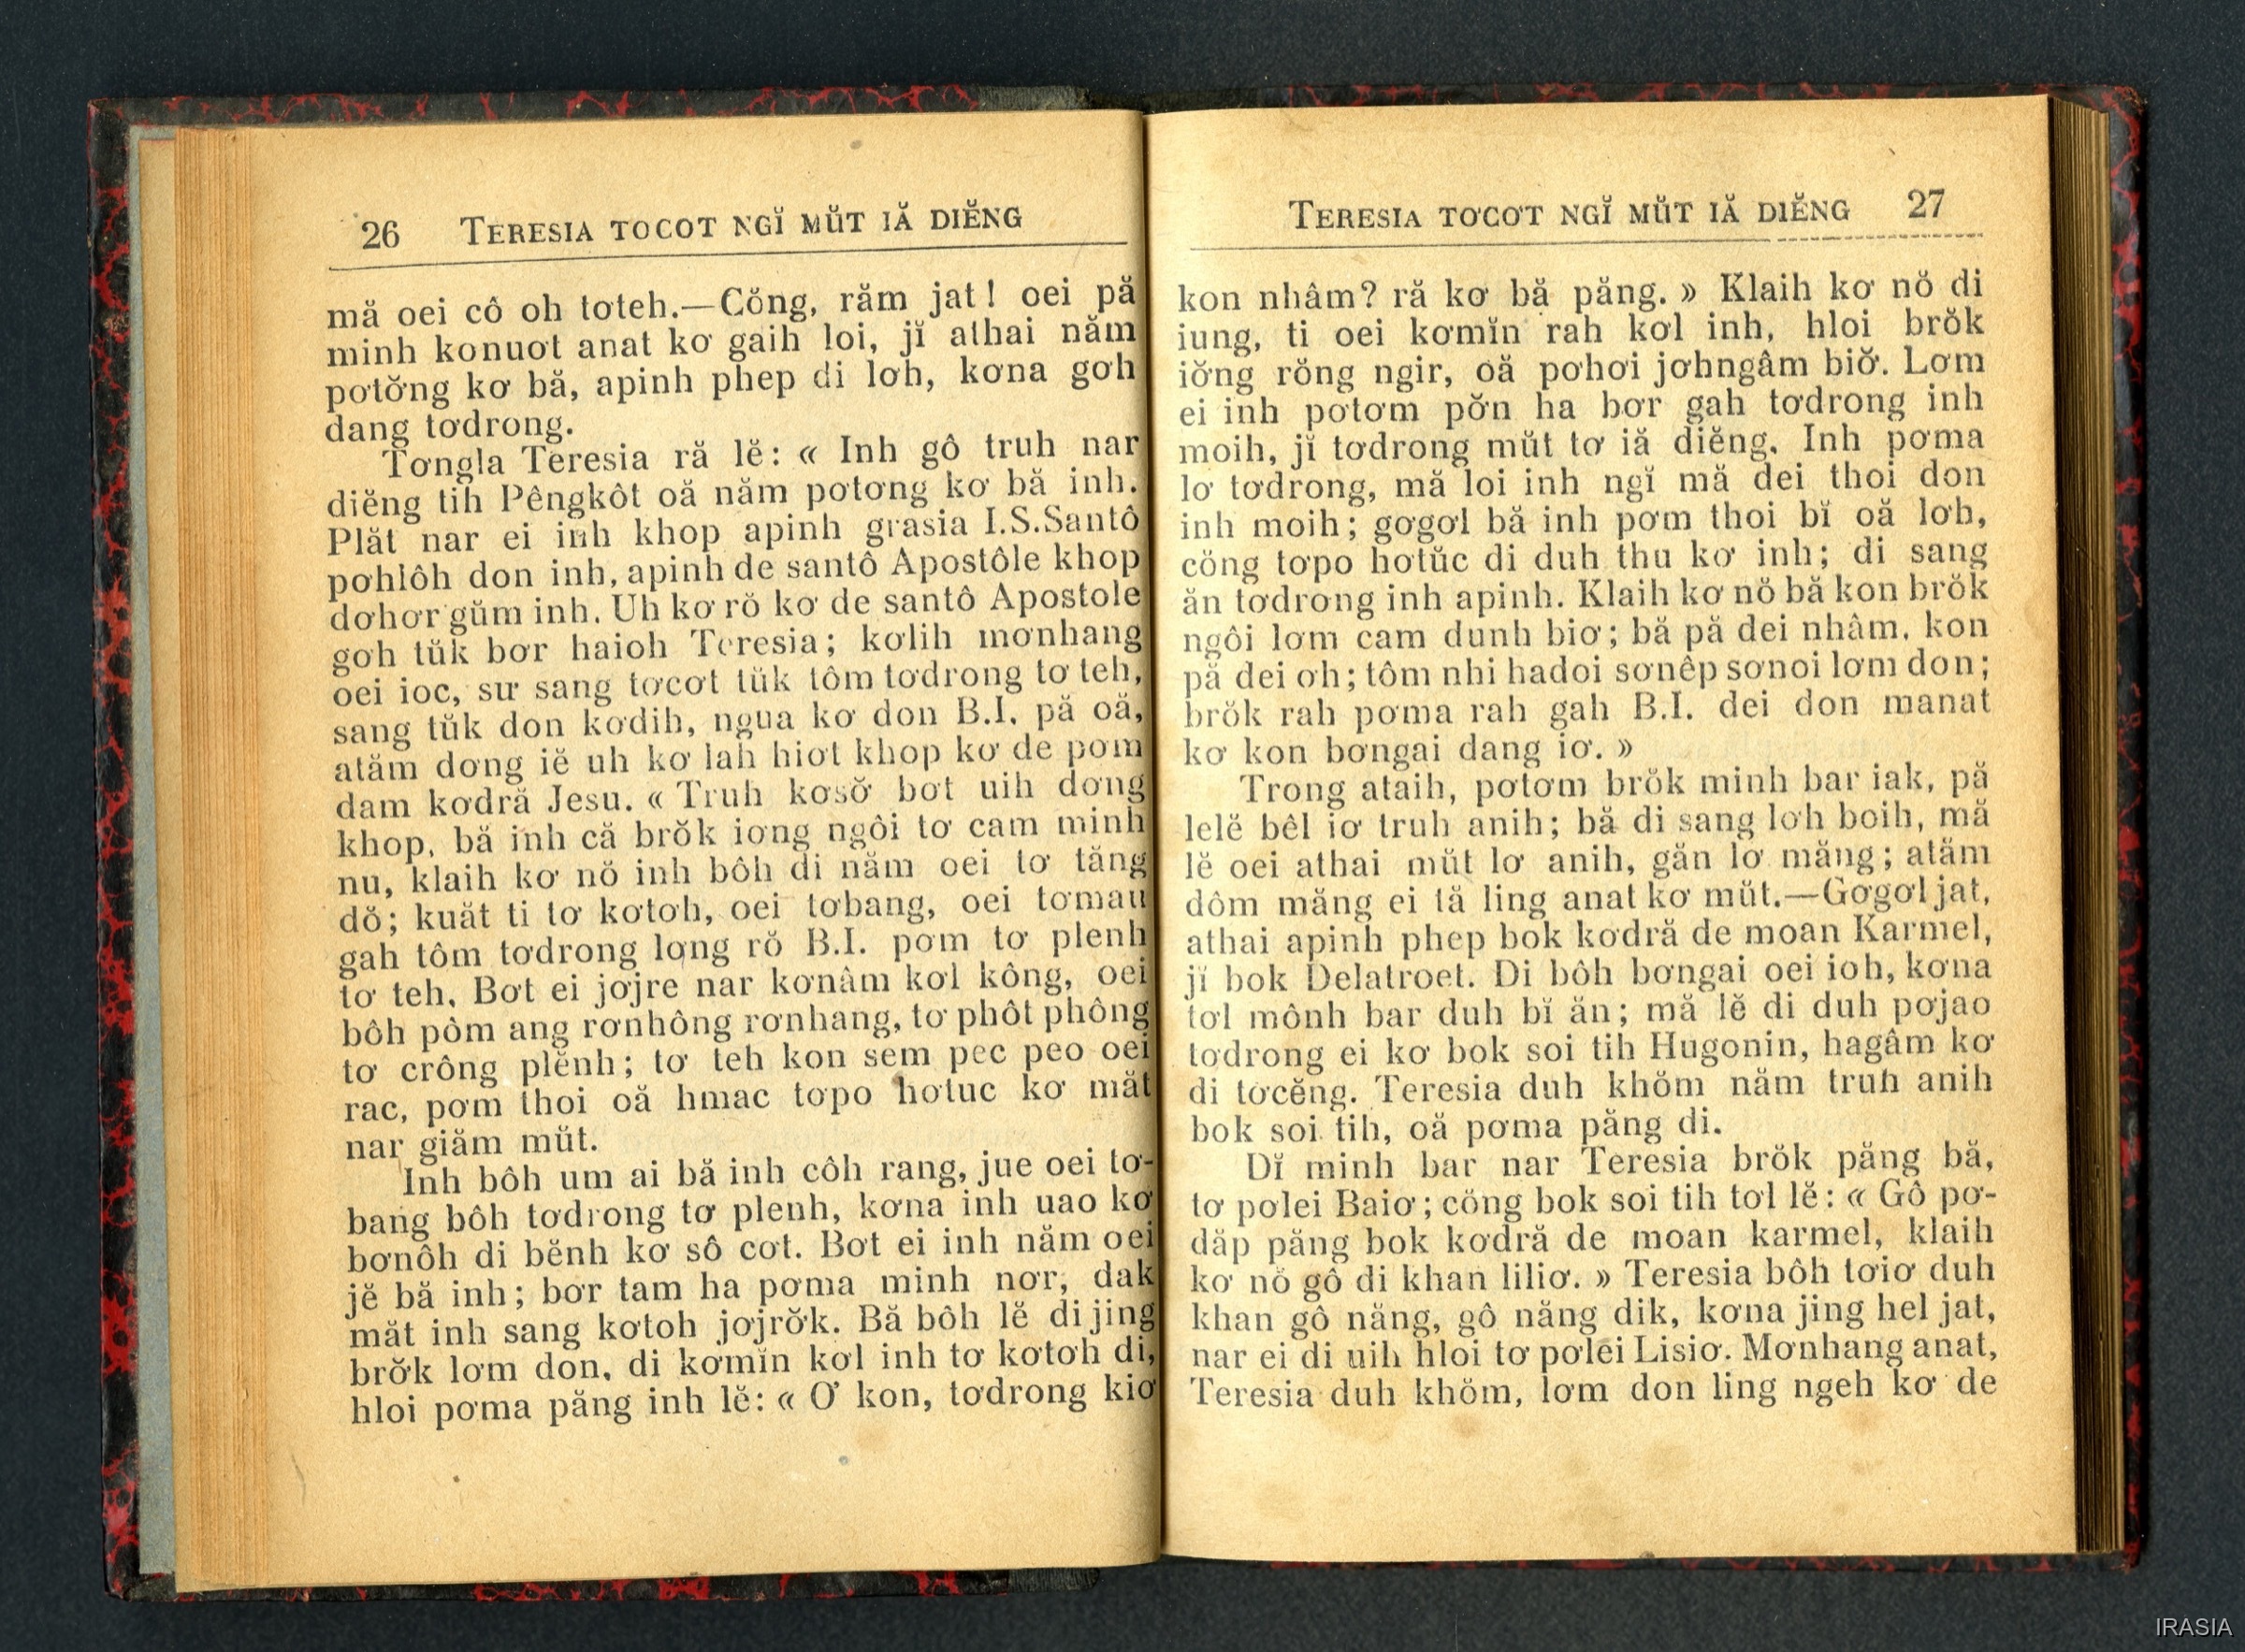 26 TERESIA TOCOT NGĬ MŬT IĂ DIĔNG
mă oei cô oh tơteh.—Cŏng, răm jat! oei pă
minh konuơt anat kơ gaih loi, jĭ athai năm
pơtơ̆ng kơ bă, apinh phep di lơh, kơna gơh
dang tơdrong.
Tơngla Teresia ră lĕ: « Inh gô truh nar
diĕng tih Pêngkôt oă năm pơtơng kơ bă inh.
Plăt nar ei inh khop apinh grasia I.S.Santô
pơhlôh don inh, apinh de santô Apostôle khop
dơhơr gŭm inh. Uh kơ rŏ kơ de santô Apostole
gơh tŭk bơr haioh Teresia; kơlih mơnhang
oei ioc, sư sang tơcơt tŭk tôm tơdrong tơ teh,
sang tŭk don kơdih, ngua kơ don B.I. pă oă,
atăm dơng iĕ uh kơ lah hiơt khop kơ de pơm
dam kơdră Jesu. « Truh kơsơ̆ bơt uih dơng
khop, bă inh că brŏk iơng ngôi tơ cam minh
nu, klaih kơ nŏ inh bôh di năm oei tơ tăng
dŏ; kuăt ti tơ kơtơh, oei tơbang, oei tơmau
gah tôm tơdrong lơng rŏ B.I. pơm tơ plenh
tơ teh. Bơt ei jơjre nar kơnâm kơl kông, oei
bôh pôm ang rơnhông rơnhang, tơ phôt phông
tơ crông plĕnh; tơ teh kon sem pec peo oei
rac, pơm thoi oă hmac tơpo hơtuc kơ măt
nar giăm mŭt.
Inh bôh um ai bă inh côh rang, jue oei tơ-
bang bôh tơdrong tơ plenh, kơna inh uao kơ
bơnôh di bĕnh kơ sô cơt. Bơt ei inh năm oei
jĕ bă inh; bơr tam ha pơma minh nơr, dak
măt inh sang kơtoh jơjrơ̆k. Bă bôh lĕ di jing
brơ̆k lơm don, di kơmĭn kơl inh tơ kơtơh di,
hloi pơma păng inh lĕ: « Ơ kon, tơdrong kiơ
TERESIA TƠCƠT NGĬ MŬT IĂ DIĔNG 27
kon nhâm? ră kơ bă păng. » Klaih kơ nŏ di
iung, ti oei kơmĭn rah kơl inh, hloi brŏk
iơ̆ng rŏng ngir, oă pơhơi jơhngâm biơ̆. Lơm
ei inh pơtơm pơ̆n ha bơr gah tơdrong inh
moih, jĭ tơdrong mŭt tơ iă diĕng. Inh pơma
lơ tơdrong, mă loi inh ngĭ mă dei thoi don
inh moih; gơgơl bă inh pơm thoi bĭ oă lơh,
cŏng tơpo hơtŭc di duh thu kơ inh; di sang
ăn tơdrong inh apinh. Klaih kơ nŏ bă kon brŏk
ngôi lơm cam dunh biơ; bă pă dei nhâm, kon
pă dei ơh; tôm nhi hadoi sơnêp sơnoi lơm don;
brŏk rah pơma rah gah B.I. dei don manat
kơ kon bơngai dang iơ. »
Trong ataih, pơtơm brŏk minh bar iak, pă
lelĕ bêl iơ truh anih; bă di sang lơh boih, mă
lĕ oei athai mŭt lơ anih, găn lơ măng; atăm
dôm măng ei tă ling anat kơ mŭt.—Gơgơl jat,
athai apinh phep bok kơdră de moan Karmel,
jĭ bok Delatroet. Di bôh bơngai oei ioh, kơna
tơl mônh bar duh bĭ ăn; mă lĕ di duh pơjao
tơdrong ei kơ bok soi tih Hugonin, hagâm kơ
di tơcĕng. Teresia duh khŏm năm truh anih
bok soi tih, oă pơma păng di.
Dĭ minh bar nar Teresia brŏk păng bă,
tơ pơlei Baiơ; cŏng bok soi tih tơl lĕ: « Gô pơ-
dăp păng bok kơdră de moan karmel, klaih
kơ nŏ gô di khan liliơ. » Teresia bôh tơiơ duh
khan gô năng, gô năng dik, kơna jing hel jat,
nar ei di uih hloi tơ pơlei Lisiơ. Mơnhang anat,
Teresia duh khŏm, lơm don ling ngeh kơ de
IRASIA